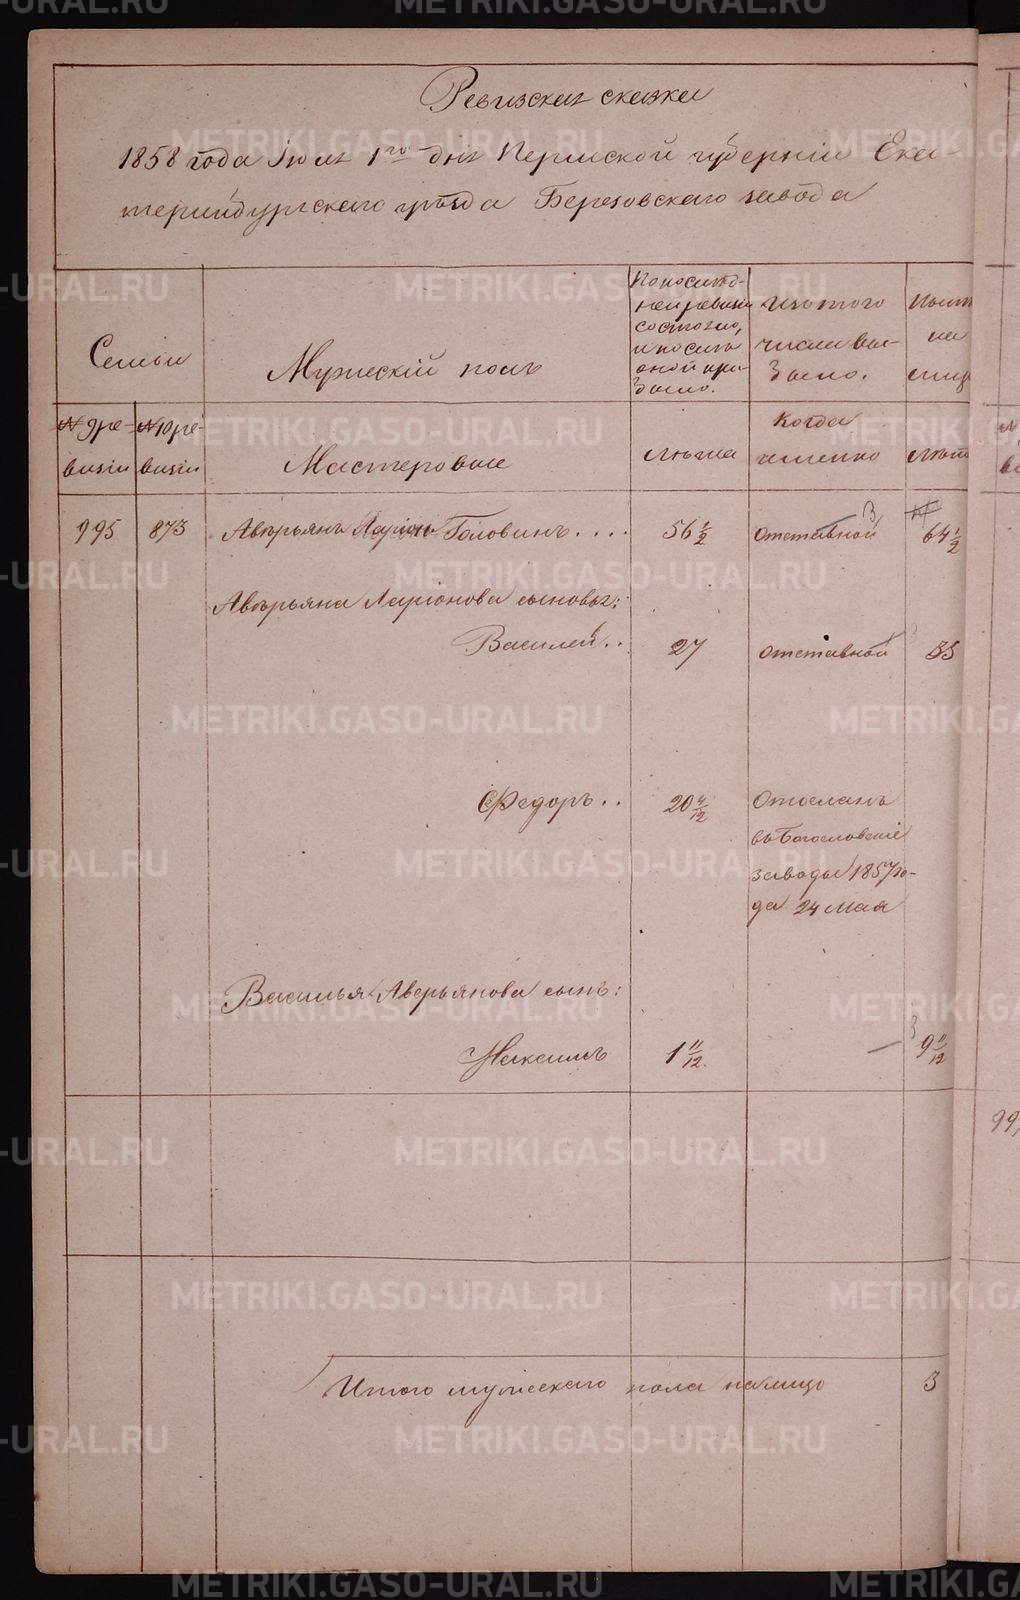 Ревизская сказка
1858 года Іюля 1го дня Пермской губерніи Ека-
теринбургскаго уѣзда Березовскаго завода
Семьи
Мужескій полъ
По послѣд-
ней ревизіи
состояло,
и послѣ
оной при-
было.
Изъ того
числа вы-
было.
Нынѣ
на
лицо
№ 9 ре-
визіи
№ 10 ре-
визіи
Мастеровые
Лѣта
Когда
именно
Лѣта
995 873 Авѣрьянъ Ларіон Головинъ.... 56 1/2 отставной 64 1/2
Авѣрьяна Ларіонова сыновья:
Василей.. 27 отставной 35
Федоръ.. 20 4/12 Отосланъ
въ Богословскіе
заводы 1857 го-
да 24 мая
Василья Аверьянова сынъ:
Максимъ 1 11/12. 9 11/12
Итого мужескаго пола налицо 3
METRIKI.GASO-URAL.RU